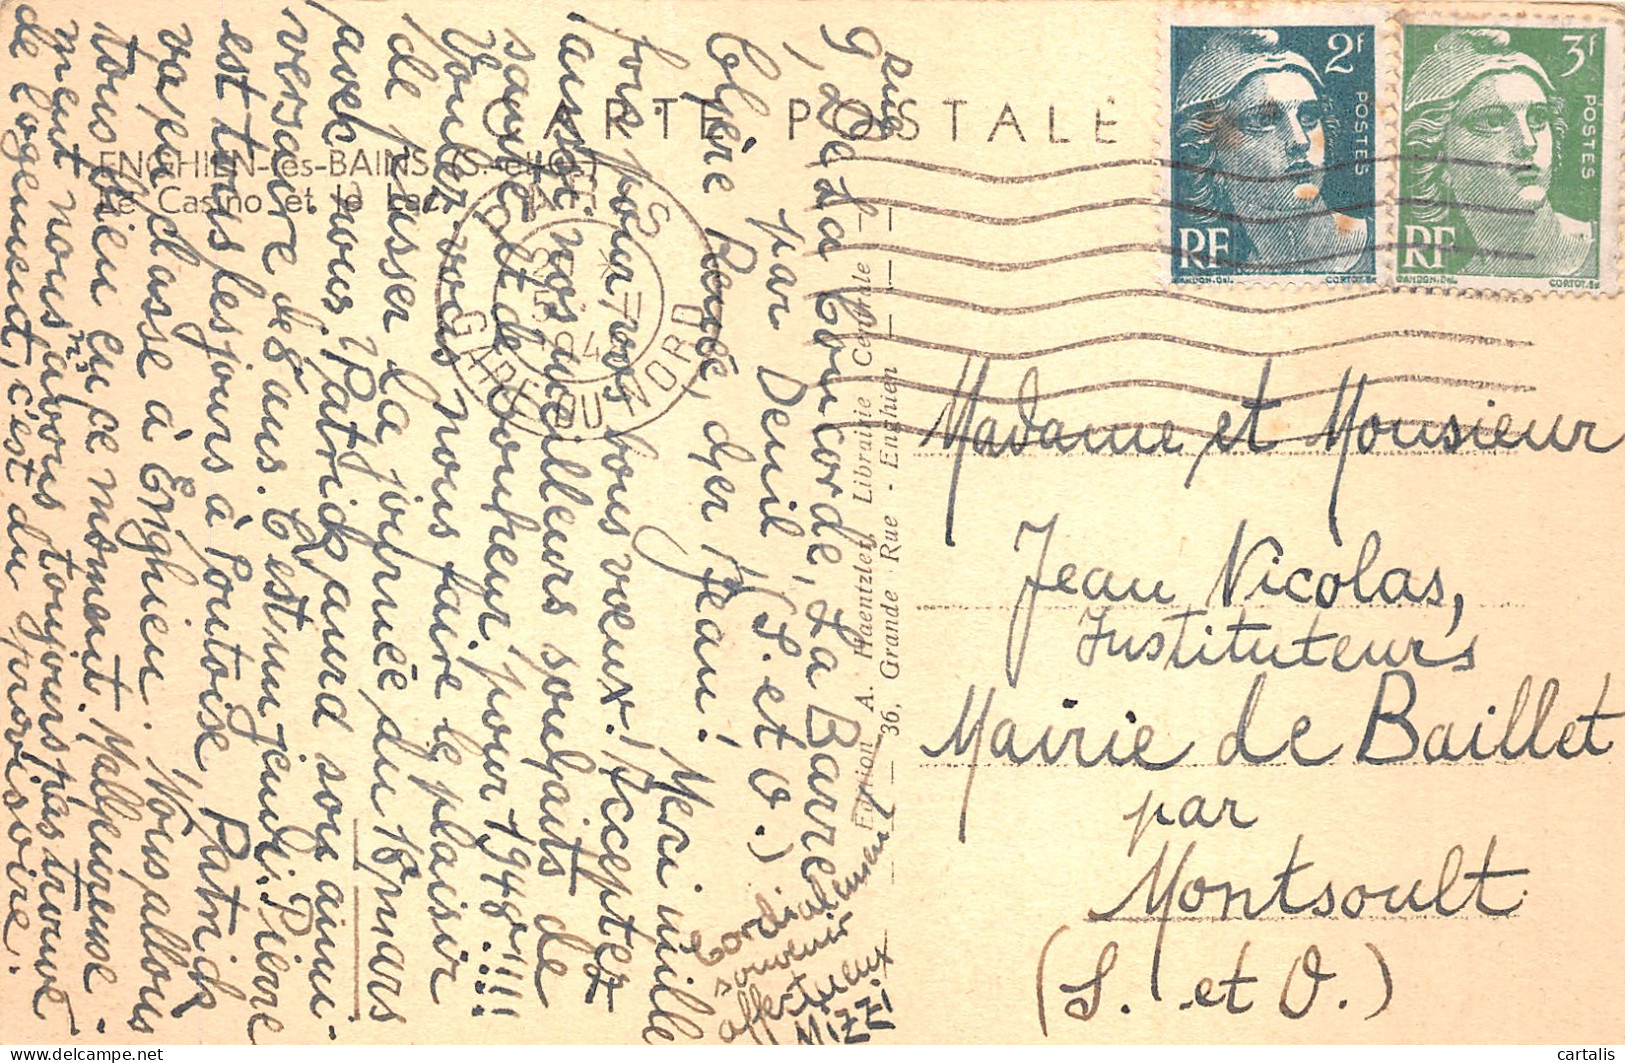 CARTE POSTALE
ENGHIEN-les-BAINS (S.-et-O.)
Le Casino et le Lac
9, rue
de La Concorde, La Barre
par Deuil (S. et O.)
Chère Renée, cher Jean!
Merci mille
fois pour vos bons vœux! Accepter
aussi nos meilleurs souhaits de
santé et de bonheur pour 1948!!!!
Voulez vous nous faire le plaisir
de passer la journée du 18 mars
avec nous, Patrick aura son anni-
versaire de 8 ans. C'est un jeudi. Pierre
est tous les jours à Pontoise, Patrick
va en classe à Enghien. Nous allons
tous bien en ce moment. Malheureuse-
ment nous n'avons toujours pas trouvé
de logement, c'est du provisoire.
Cordialement
souvenir
affectueux
MIZZI
Edition A. Haentzler, Librairie Centrale
36, Grande Rue - Enghien
GARE DU NORD
2f
POSTES
RF
GANDON. Del.
CORTOT. Sc
3f
POSTES
RF
GANDON. Del.
CORTOT. Sc
Madame et Monsieur
Jean Nicolas,
Instituteurs
Mairie de Baillet
par
Montsoult
(S. et O.)
cartalis